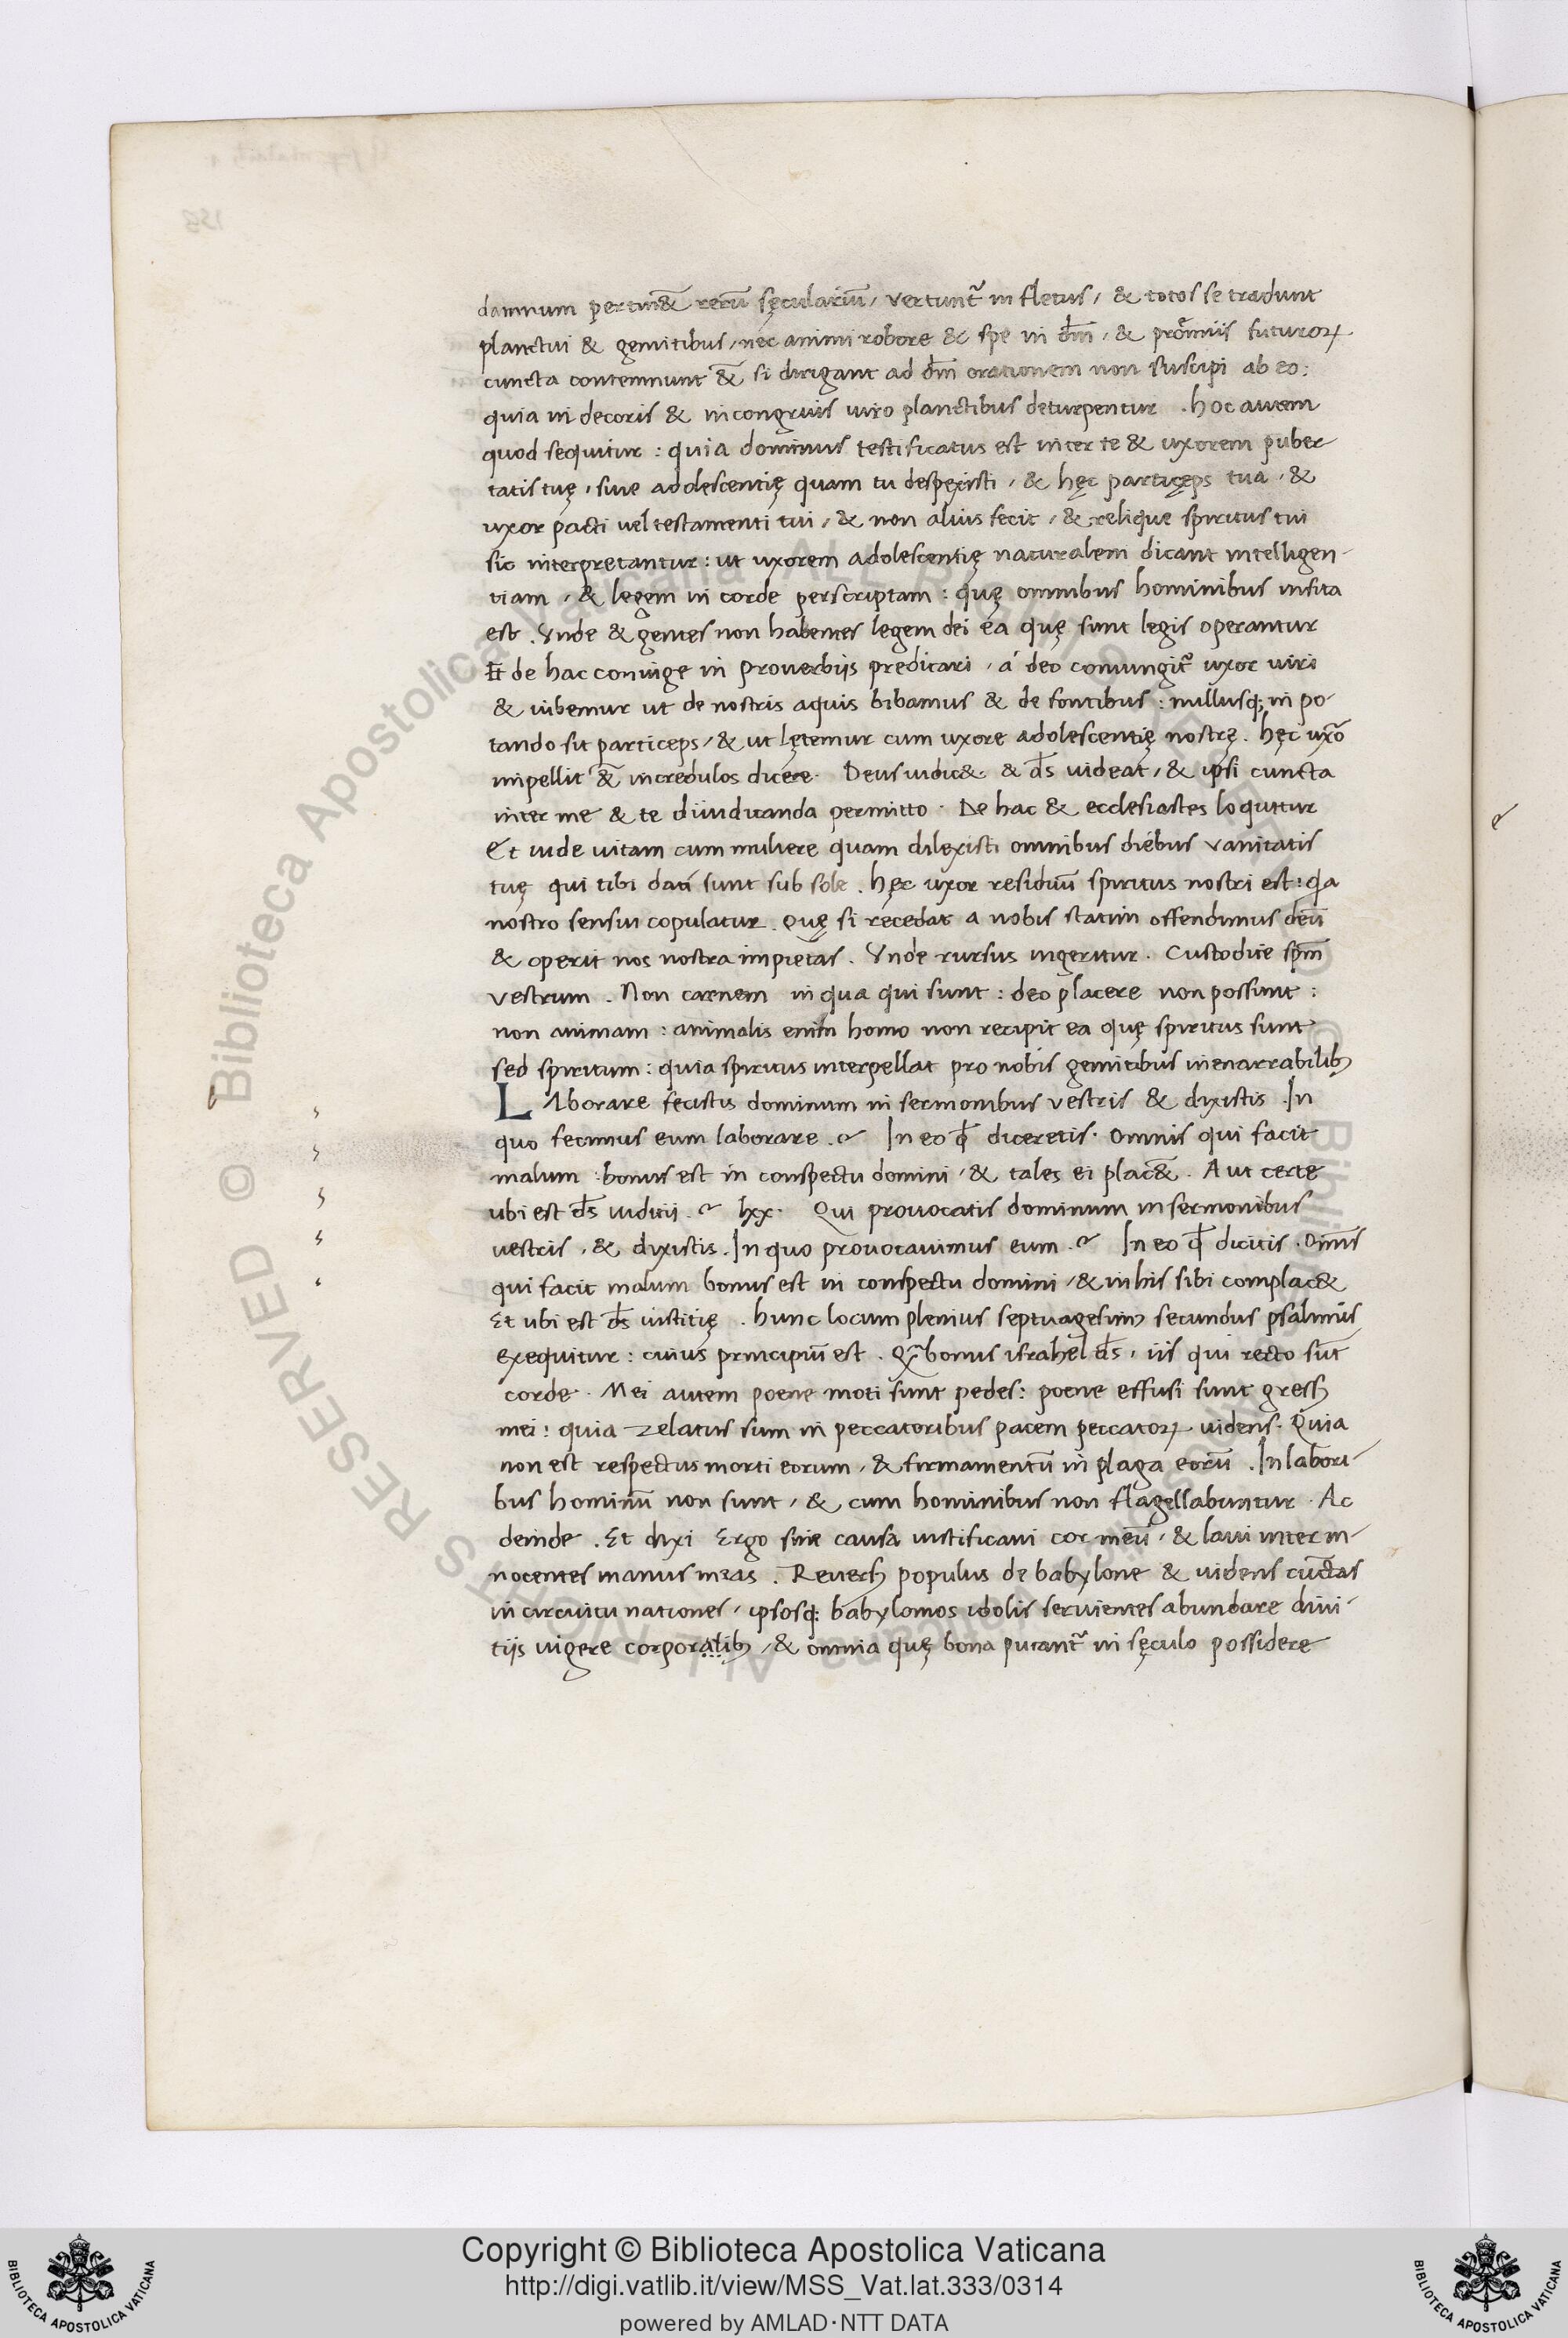 damnum pertin&̃ rerũ sęculariũ, vertunt᷑ in fletus, & totos se tradunt
planctui & gemitibus, nec animi robore & spe in dñm, & prȩmiis futuroꝝ
cuncta contemnunt &̃ si dirigant ad dñm orationem non suscipi ab eo:
quia in decoris & incongruis uiro planctibus deturpentur . hoc autem
quod sequitur : quia dominus testificatus est inter te & uxorem puber
tatis tuę, siue adolescentię quam tu despexisti, & hęc particęps tua, &
uxor pacti uel testamenti tui, & non alius fecit, & relique spiritus tui
sic interpretantur: ut uxorem adolescentię naturalem dicant intelligen-
tiam, & legem in corde perscriptam : quę omnibus hominibus insita
est . Vnde & gentes non habentes legem dei ea quę sunt legis operantur
Et de hac coniuge in proverbijs predicari, á deo coniungit᷑ uxor uiro
& iubemur ut de nostris aquis bibamus & de fontibus : nullusq; in po-
tando sit particeps, & ut lętemur cum uxore adolescentię nostrę. hęc uxõ
inpellit &̃ incredulos dicere. Deus iudic& & d̃s uideat, & ipsi cuncta
inter me & te diiudicanda permitto . De hac & ecclesiastes loquitur
Et uide uitam cum muliere quam dilexisti omnibus diebus vanitatis
tuę qui tibi dati sunt sub sole . hęc uxor residuũ spiritus nostri est: qa
nostro sensui copulatur . Quę si recedat a nobis statim offendimus deũ
& operit nos nostra impietas . Vnde rursus ingeritur . Custodite sp̃m
vestrum . Non carnem in qua qui sunt : deo placere non possunt :
non animam : animalis enim homo non recipit ea quę spiritus sunt
sed spiritum : quia spiritus interpellat pro nobis gemitibus inenarrabilib;
LAborare fecistis dominum in sermonibus vestris & dixistis . In
quo fecimus eum laborare .? In eo qđ diceretis. Omnis qui facit
malum : bonus est in conspectu domini, & tales ei plac&̃ . Aut certe
ubi est d̃s iudicii .? lxx. Qui prouocatis dominum in sermonibus
uestris , & dixistis . In quo prouocauimus eum .? In eo qđ dicitis . Om̃is
qui facit malum bonus est in conspectu domini, & in his sibi complac&
Et ubi est d̃s iustitię . hunc locum plenius septuagesim; secundus psalmus
exequitur : cuius principiũ est . Quã bonus israhel d̃s, iis qui recto sũt
corde . Mei autem poene moti sunt pedes: poene effusi sunt gress;
mei : quia zelatus sum in peccatoribus pacem peccatoꝝ uidens. Quia
non est respectus morti eorum, & firmamentũ in plaga eorũ . In labori-
bus hominũ non sunt, & cum hominibus non flagellabuntur . Ac
deinde . Et dixi Ergo sine causa iustificaui cor meũ, & laui inter in-
nocentes manus meas . Revers; populus de babylone & uidens cũctas
in circuitu nationes, ipsosq; babylonios idolis seruientes abundare diui-
tijs uigere corporalib;, & omnia quę bona putant᷑ in sęculo possidere
Copyright © Biblioteca Apostolica Vaticana
http://digi.vatlib.it/view/MSS_Vat.lat.333/0314
powered by AMLAD·NTT DATA